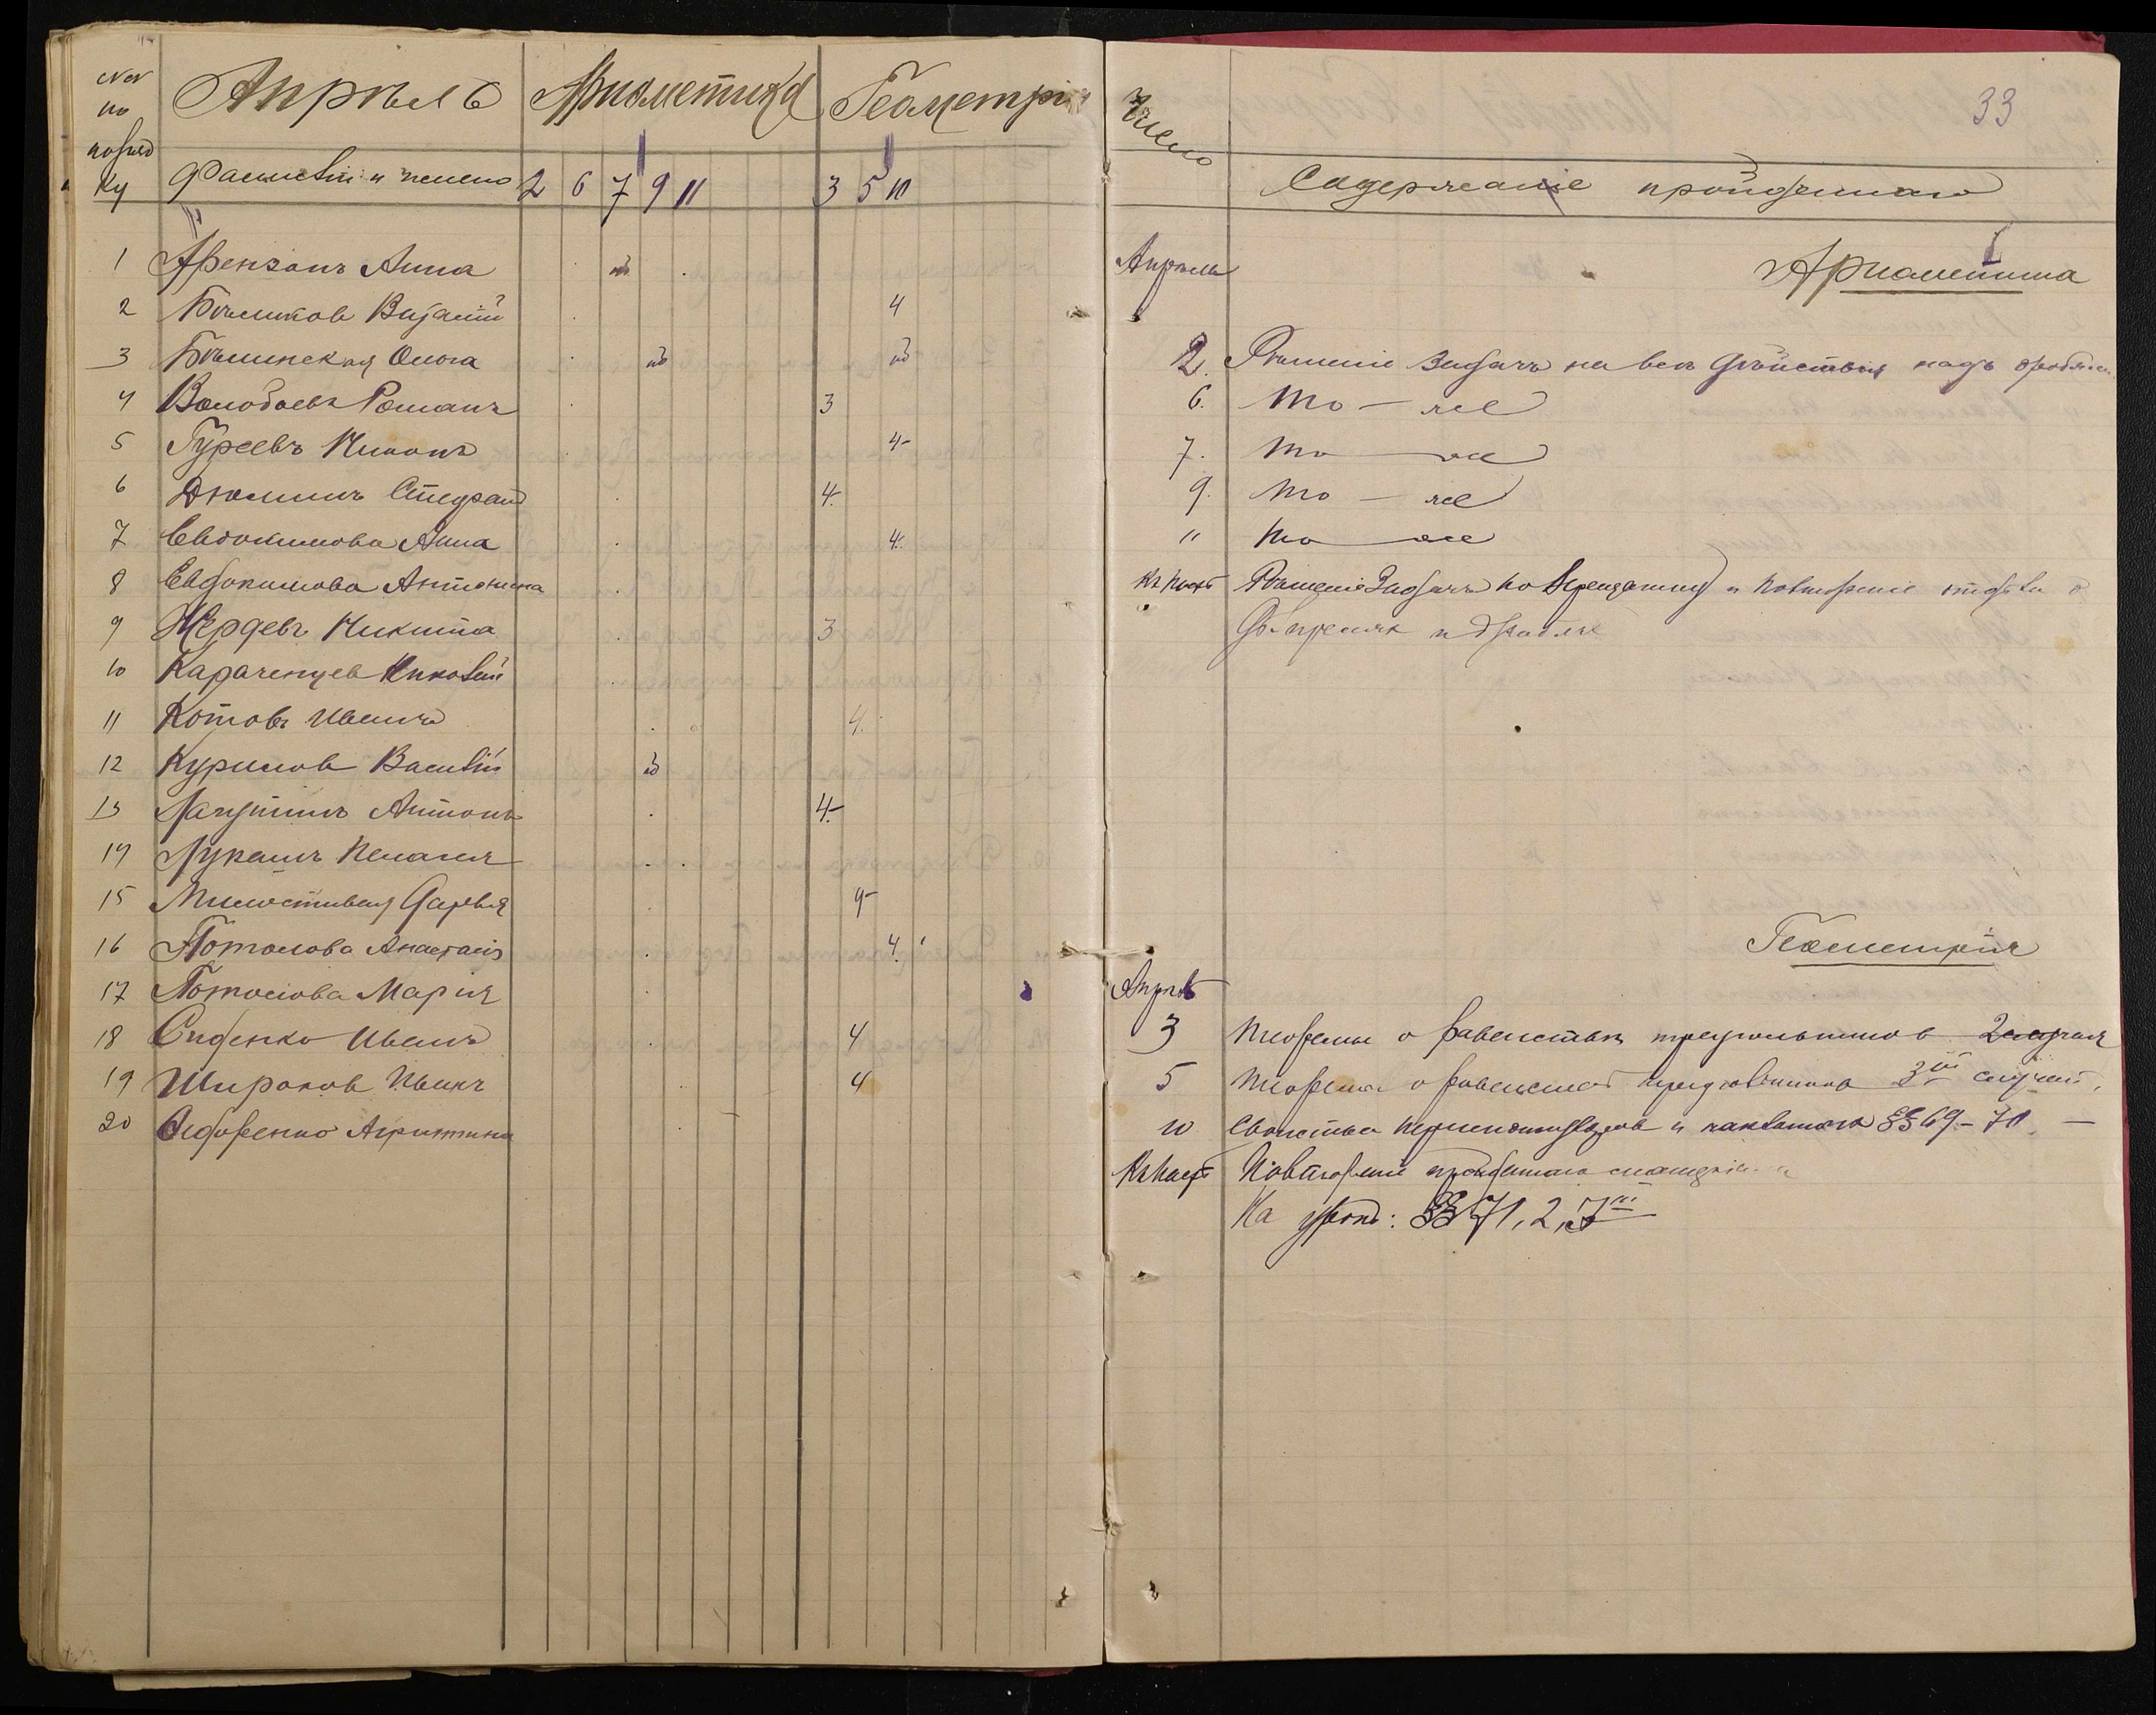 №№ по порядку
Апрѣль
Ариѳметика
Геометрія
Фамилія и число
2 6 7 9 11
3 5 10
1 Аренганъ Анна нб
2 Бѣликовъ Виталій 4
3 Бѣлинская Ольга нб нб
4 Володоевъ Романъ 3
5 Гуреевъ Никонъ 4-
6 Дюминъ Спиридо 4
7 Евдокимова Анна 4
8 Евдокимова Антонина
9 Жердевъ Никита 3
10 Караченцев Николай
11 Котовъ Иванъ 4
12 Курилов Василій нб
13 Лагутинъ Антонъ 4-
14 Лукашъ Пелагея
15 Милостивая Дарья 4-
16 Потолова Анастасія 4
17 Потолова Марія
18 Сиденко Иванъ 4
19 Широков Иванъ 4
20 Ѳедоренко Агрипина
33
Число
Содержаніе пройденнаго
Апрѣль
Ариѳметика
2. Рѣшеніе задачъ на всѣ дѣйствія надъ дробями
6. То – же
7. То – же
9. То – же
11 То – же
Рѣшеніе задачъ по Верещагину и повтореніе отдѣла о
Геометрія
Апрѣль
3 Теоремы о равенствѣ треугольников 2 случая
5 Теорема о равенствѣ треугольников 3ій случай.
10 Свойства перпендикуляров и наклонных §§ 69 – 70. –
Повтореніе пройденнаго
На урокъ: §§ 71, 2, 3